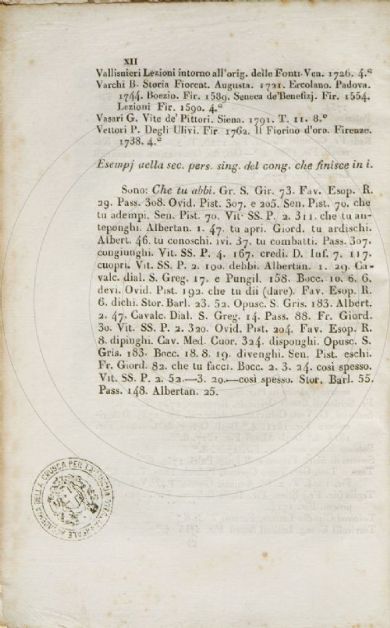 XII
Vallisnieri Lezioni intorno all'orig. delle Fonti. Ven. 1726. 4.°
Varchi B. Storia Fiorent. Augusta. 1721. Ercolano. Padova.
1744. Boezio. Fir. 1589. Seneca de'Benefizj. Fir. 1554.
Lezioni Fir. 1590. 4.°
Vasari G. Vite de' Pittori. Siena. 1791. T. 11. 8.°
Vettori P. Degli Ulivi. Fir 1762. Il Fiorino d'oro. Firenze.
1738. 4.°
Esempj della sec. pers. sing. del cong. che finisce in i.
Sono: Che tu abbi. Gr. S. Gir. 73. Fav. Esop. R.
29. Pass. 308. Ovid. Pist. 307. e 205. Sen. Pist. 70. che
tu adempi. Sen. Pist. 70. Vit. SS. P. 2. 311. che tu an-
teponghi. Albertan. 1. 47. tu apri. Giord. tu ardischi.
Albert. 46. tu conoschi. ivi. 37. tu combatti. Pass. 307.
congiunghi. Vit. SS. P. 4. 167. credi. D. Inf. 7. 117.
cuopri. Vit. SS. P. 2. 190. debbi. Albertan. 1. 29. Ca-
valc. dial. S. Greg. 17. e Pungil. 158. Bocc. 10. 6. 6.
devi. Ovid. Pist. 192. che tu dii (dare). Fav. Esop. R.
6. dichi. Stor. Barl. 23. 52. Opusc. S. Gris. 183. Albert.
2. 47. Cavalc. Dial. S. Greg. 14. Pass. 88. Fr. Giord.
30. Vit. SS. P. 2. 320. Ovid. Pist. 204. Fav. Esop. R.
8. dipinghi. Cav. Med. Cuor. 324. disponghi. Opusc. S.
Gris. 183. Bocc. 18. 8. 19. divenghi. Sen. Pist. eschi.
Fr. Giord. 82. che tu facci. Bocc. 2. 3. 24. così spesso.
Vit. SS. P. 2. 52.—3. 20.—così spesso. Stor. Barl. 55.
Pass. 148. Albertan. 25.